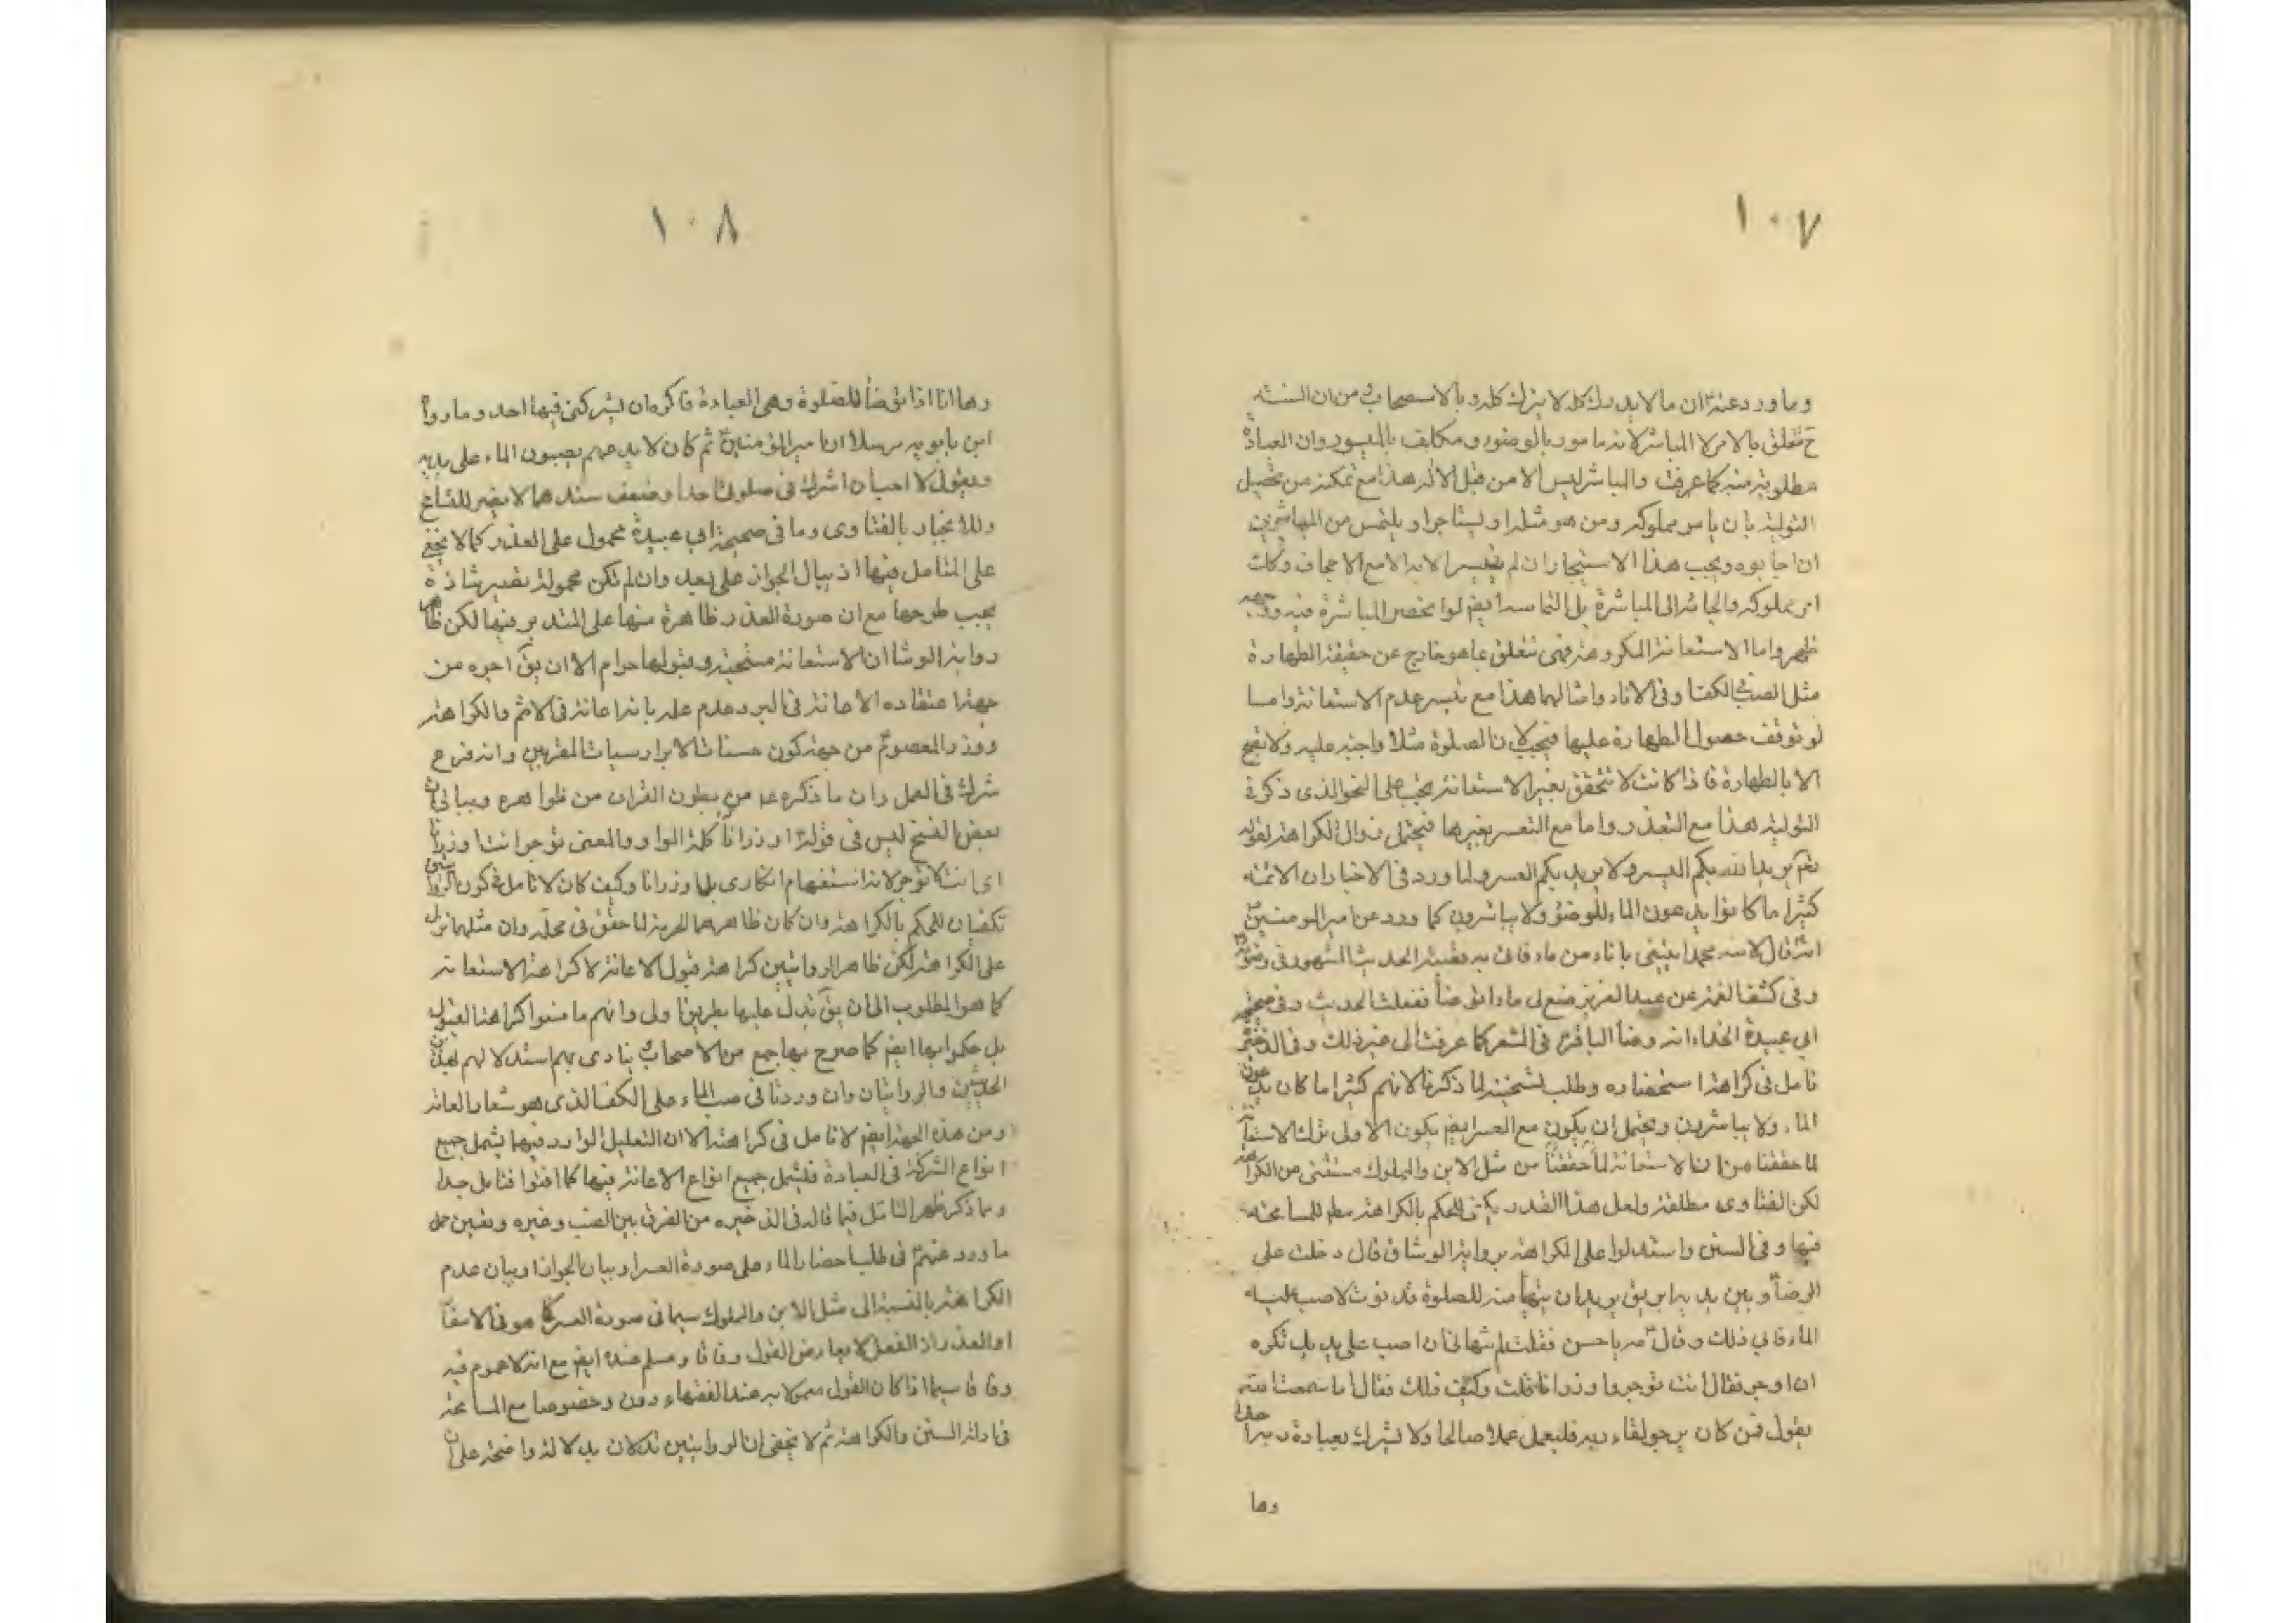 ١٠٧
وما ورد عنه ان ما لا يدرك كله لا يترك كله وبالاستصحاب من ان السنة
ح تتعلق بالامر لا المباشر لانه مامور بالوضوء ومكلف بالميسور وان العبادة
مطلوبة منه كما عرفت والمباشر ليس الا من قبل الالة هذا مع تمكنه من تحصيل
التولية بان يامر مملوكه ومن هو مثله او ليستاجر او يلتمس من المباشرين
ان اجابوه ويجب هذا الاستيجار ان لم يتيسر الا به الا مع الاجحاف وكانت
امر مملوكه والجائر الى المباشرة بل التماسه ايضا لو انحصر المباشرة فيه
ظهر واما الاستعانة المكروهة فهي تتعلق بما هو خارج عن حقيقة الطهارة
مثل الصب في الكف او في الاناء وامثالهما هذا مع تيسر عدم الاستعانة واما
لو توقف حصول الطهارة عليها فيجب لان الصلوة مثلا واجبة عليه ولا تصح
الا بالطهارة فاذا كانت لا تتحقق بغير الاستعانة يجب على النحو الذى ذكر في
التولية هذا مع التعذر واما مع التعسر بغيرها فيحتمل زوال الكراهة لقوله
تعم يريد الله بكم اليسر ولا يريد بكم العسر ولما ورد في الاخبار ان الائمة
كثيرا ما كانوا يدعون الماء للوضوء ولا يباشرون كما ورد عن امير المومنين
انه قال لابنه محمد ايتني باناء من ماء فاتى به بقية الحديث المشهور في وضوئه
وفي كشف الغمة عن عبد العزيز ضع لى ماء اتوضأ ففعلت الحديث وفي صحيحة
ابي عبيدة الحذاء انه وضأ الباقر في المشعر كما عرفت الى غير ذلك وفي الذخيرة
تامل في كراهة استحضاره وطلب تسخينه لما ذكرنا لانهم كثيرا ما كان يدعون
الماء ولا يباشرون ويحتمل ان يكون مع العسر ايضا يكون الاولى ترك الاستعانة
لما حققنا من ان الاستعانة لما حققنا من مثل الابن والمملوك مستثنى من الكراهة
لكن الفتاوى مطلقة ولعل هذا القدر يكفي للحكم بالكراهة مطلقا للمسامحة
فيها وفي السنن واستدلوا على الكراهة برواية الوشاء قال دخلت على
الرضا وبين يديه ابريق يريد ان يتهيأ منه للصلوة فدنوت لاصب عليه
الماء فابي ذلك وقال مه يا حسن فقلت لم تنهاني ان اصب على يديك تكره
ان اوجر فقال انت توجر واوزر انا قلت وكيف ذلك فقال اما سمعت الله
يقول فمن كان يرجو لقاء ربه فليعمل عملا صالحا ولا يشرك بعبادة ربه احدا
وها
١٠٨
وها انا اذا اتوضأ للصلوة وهي العبادة فاكره ان يشركنى فيها احد وما رواه
ابن بابويه مرسلا ان امير المؤمنين ثم كان لا يدعهم يصبون الماء على يديه
ويقول لا احب ان اشرك في صلوتي احدا وضعف سندهما لا يضر للتسامح
وللانجبار بالفتاوى وما في صحيحة ابي عبيدة محمول على العذر كما لا يخفى
على المتامل فيها اذ بيان الجواز على بعد وان لم تكن محمولة تصير شاذة
يجب طرحها مع ان صورة العذر ظاهرة منها على المتدبر فيها لكن ظاهر
رواية الوشا ان الاستعانة مستحبة وقبولها حرام الا ان يق اجره من
جهة اعتقاده الاعانة في البر وعدم علمه بانه اعانة في الاثم والكراهة
ووزر المعصوم من جهة كون حسنات الابرار سيئات المقربين وانه فرع
شرك في العمل وان ما ذكره من بطون القران من ظواهره ويباني ان
بعض النسخ ليس في قوله اوزر انا كلمة الواو والمعنى توجر انت اوزر انا
اى انت لا توجر لانه استفهام انكارى بل اوزر انا وكيف كان لا تامل في كون الروايتين
تكفيان للحكم بالكراهة وان كان ظاهرهما الحرمة لما حقق في محله وان مثلهما
على الكراهة لكن ظاهر الروايتين كراهة قبول الاعانة لا كراهة الاستعانة
كما هو المطلوب الى ان يق تدل عليها بطريق اولى وانهم ما منعوا كراهة القبول
بل حكموا بها ايضا كما صرح بها جمع من الاصحاب ينادى بهم استدلالهم
الحديثين والروايتان وان وردتا في صب الماء على الكف الذى هو شعار العامة
ومن هذه الجهة ايضا لا تامل في كراهته الا ان التعليل الوارد فيهما يشمل جميع
انواع الشركة في العبادة فليشمل جميع انواع الاعانة فيها كما افتوا فتامل جدا
وبما ذكر ظهر التامل فيما قاله في الذخيرة من الفرق بين الصب وغيره وتعين حمل
ما ورد عنهم في طلب احضار الماء على صورة العسر او بيان الجواز او بيان عدم
الكراهة بالنسبة الى مثل الابن والمملوك سيما في صورة العسر كما هو في الاسفار
او العذر اذ الفعل لا يعارض القول وفاقا ومسلم عنده ايضا مع انه لا عموم فيه
وفاقا سيما اذا كان القول معمولا به عند الفقهاء دون وخصوصا مع المسامحة
في ادلة السنن والكراهة ثم لا يخفى ان الروايتين تدلان بدلالة واضحة على ان